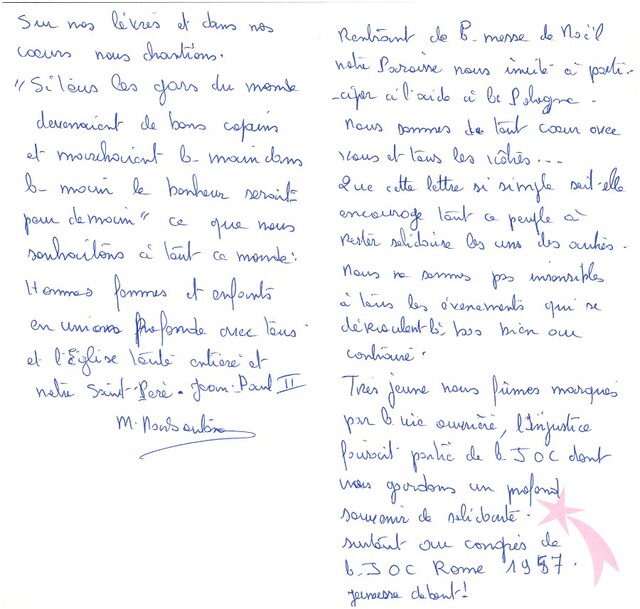 Sur nos lèvres et dans nos
cœurs nous chantions.
"Si tous les gars du monde
devenaient de bons copains
et marchaient la main dans
la main le bonheur serait
pour demain" ce que nous
souhaitons à tout ce monde:
Hommes femmes et enfants
en unions profonde avec tous
et l'Église toute entière et
notre Saint-Père. Jean-Paul II
M.
Rentrant de la messe de Noël
notre Paroisse nous invite à parti-
-ciper à l'aide à la Pologne.
Nous sommes de tout cœur avec
vous et tous les vôtres...
Que cette lettre si simple soit-elle
encourage tout ce peuple à
rester solidaire les uns des autres.
Nous ne sommes pas insensibles
à tous les évenements qui se
déroulent là, bas bien au
contraire.
Très jeune nous fûmes marqués
par la vie ouvrière, l'Injustice
faisait partie de la JOC dont
nous gardons un profond
souvenir de solidarité.
surtout au congrès de
la JOC Rome 1957.
jeunesse debout!